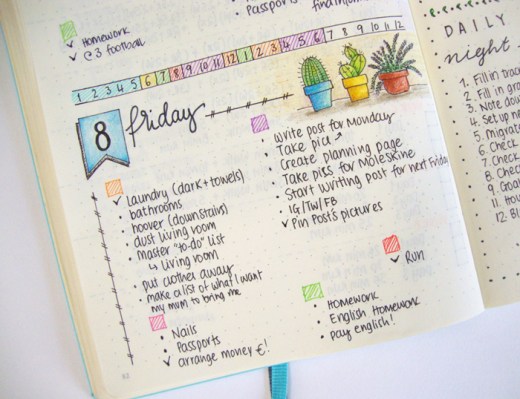 Passports
find inform
✓ Homework
✓ C3 football
1 2 3 4 5 6 7 8 9 10 11 12 1 2 3 4 5 6 7 8 9 10 11 12
8 friday
✓ laundry (dark + towels)
• bathrooms
• hoover (downstairs)
• dust living room
• master "to-do" list
↳ living room
• put clothes away
• make a list of what I want
my mum to bring me
• Nails
• Passports
✓ arrange money €!
• Write post for Monday
• Take pics
• Create planning page
• Take pics for Moleskine
• Start writing post for next Friday
• IG/TW/FB
✓ Pin Posts pictures
✓ Run
• Homework
• English Homework
• pay english!
DAILY
night
1. Fill in trac
2. Fill in gra
3. Note dow
4. Set up n
5. Migrat
6. Check
7. Check
8. Chec
9. Goal
11. Hou
12. Bl